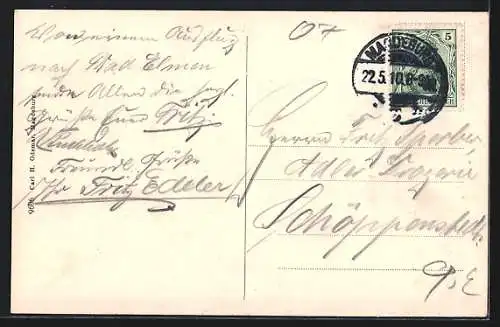 Von einem Ausflug
nach Bad Elmen
sende Allen die herzl.
Grüße Euer Fritz.
Freundl. Grüße
Ihr Fritz Edeler
9676 Carl H. Odemar, Magdeburg
MAGDEBURG
22.5.10.8-9
5
Herrn Fritz Sperber
Adler Drogerie
Schöppenstedt